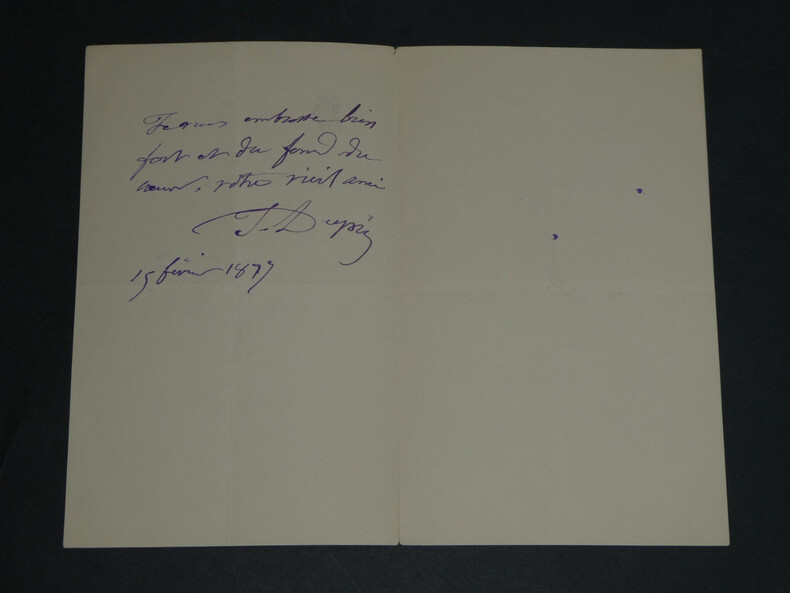 Je vous embrasse bien
fort et du fond du
cœur, votre vieil ami
J. Dupré
15 février 1879